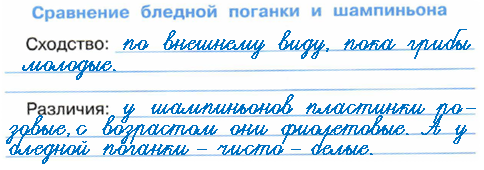 Сравнение бледной поганки и шампиньона
Сходство: по внешнему виду, пока грибы
молодые.
Различия: у шампиньонов пластинки ро-
зовые, с возрастом они фиолетовые. А у
бледной поганки - чисто - белые.